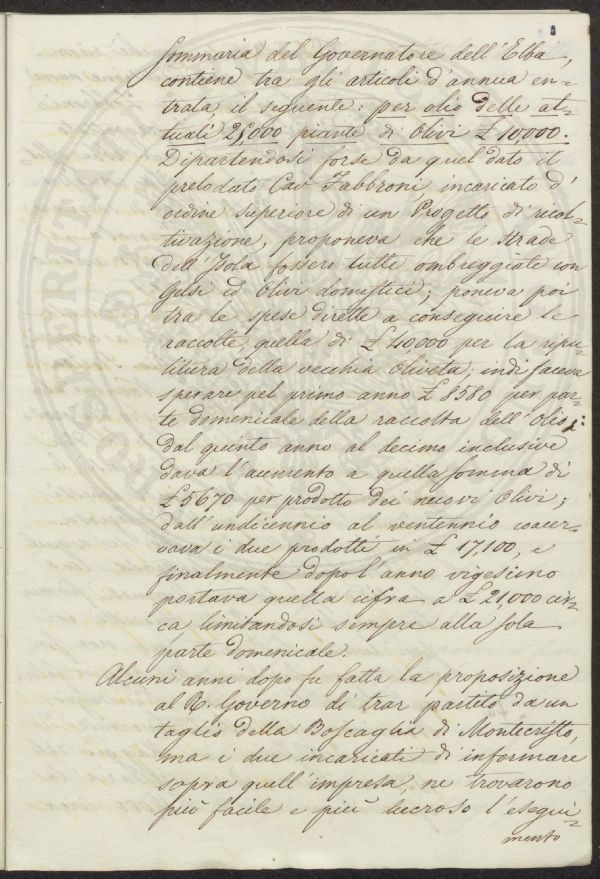 Sommaria del Governatore dell'Elba,
contiene tra gli articoli d'annua en=
trata il seguente: per olio delle at=
tuali 25,000 piante di Olivi £ 10000.
Dipartendosi forse da quel dato il
prelodato Cav Fabbroni, incaricato d'
ordine superiore di un Progetto di ricol=
tivazione, proponeva che le strade
dell'Isola fossero tutte ombreggiate con
Gelsi ed Olivi domestici; poneva poi
tra le spese dirette a conseguire le
raccolte quella di £ 40000 per la ripu=
litura della vecchia Oliveta; indi faceva
sperare pel primo anno £ 8580 per par=
te domenicale della raccolta dell'Olio:
dal quinto anno al decimo inclusive
dava l'aumento a quella somma di
£ 5670 per prodotto dei nuovi Olivi;
dall'undicennio al ventennio coacer=
vava i due prodotti in £ 17,100, e
finalmente dopo l'anno vigesimo
portava quella cifra a £ 21,000 cir=
ca limitandosi sempre alla sola
parte domenicale.
Alcuni anni dopo fu fatta la proposizione
al R. Governo di trar partito da un
taglio della Boscaglia di Montecristo,
ma i due incaricati di informare
sopra quell'impresa, ne trovarono
più facile e più lucroso l'esegui=
mento
PROSPERITAT